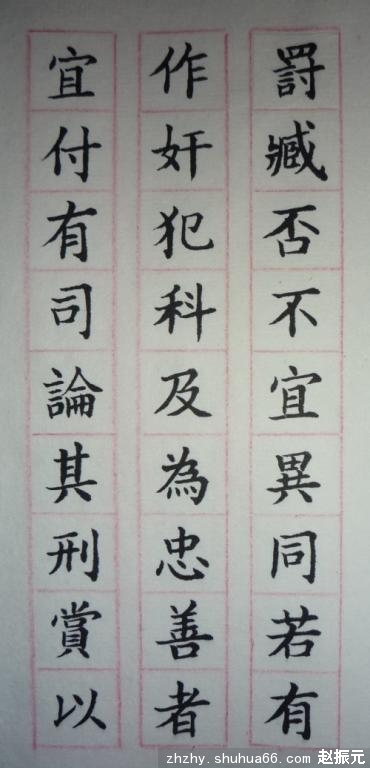 罰臧否不宜異同若有
作奸犯科及為忠善者
宜付有司論其刑賞以
zhzhy.shuhua66.com 赵振元